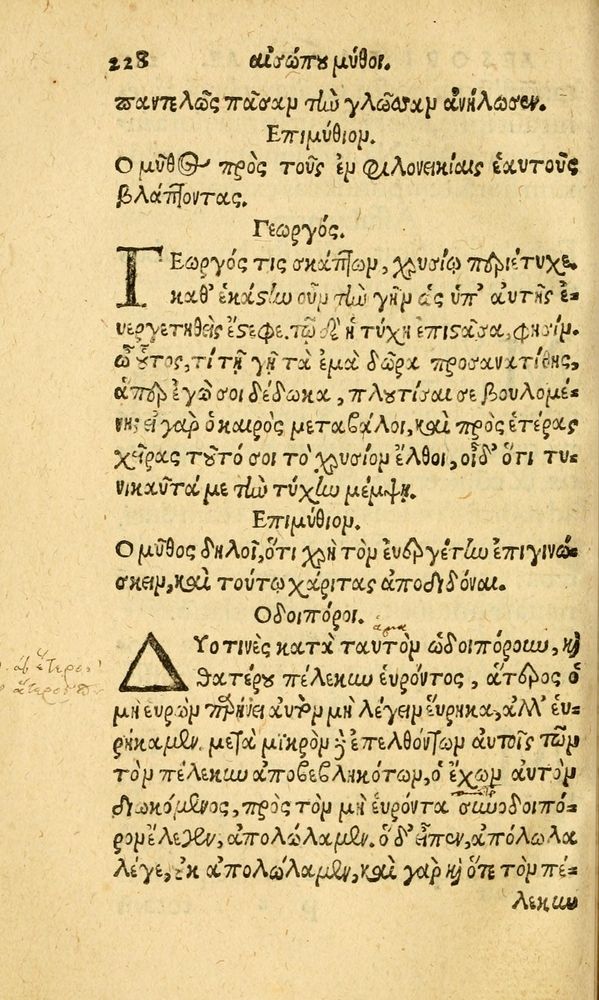 228 αἰσώπου μῦθοι.
παντελῶς πᾶσαν τὴν γλῶσσαν ἀνήλωσεν.
Επιμύθιον.
Ο μῦθος πρὸς τοὺς ἐν φιλονεικίαις ἑαυτοὺς
βλάπτοντας.
Γεωργός.
ΓΕωργός τις σκάπτων, χρυσίῳ περιέτυχε.
καθ' ἑκάστην οὖν τὴν γῆν ὡς ὑπ' αὐτῆς ἐυ-
εργετηθεὶς ἔστεφε. τῷ δὲ ἡ τύχη ἐπιστᾶσα, φησίν.
ὦ οὗτος, τί τῇ γῇ τὰ ἐμὰ δῶρα προσανατίθης,
ἅπερ ἐγώ σοι δέδωκα, πλουτίσαι σε βουλομέ-
νη; εἰ γὰρ ὁ καιρὸς μεταβάλοι, καὶ πρὸς ἑτέρας
χεῖρας τοῦτό σοι τὸ χρυσίον ἔλθοι, οἶδ' ὅτι τυ-
νικαῦτα με τὴν τύχην μέμψῃ.
Επιμύθιον.
Ο μῦθος δηλοῖ, ὅτι χρὴ τὸν ἐυεργέτην ἐπιγινώ-
σκειν, καὶ τούτῳ χάριτας ἀποδιδόναι.
Οδοιπόροι.
ΔΥο τινὲς κατὰ ταυτὸν ὡδοιπόρουν, καὶ
θατέρου πέλεκυν ἑυρόντος, ἅτερος ὁ
μὴ ευρὼν παρῄνει αὐτὸν μὴ λέγειν ἕυρηκα, ἀλλ' ἑυ-
ρήκαμεν. μετὰ μικρὸν δὲ ἐπελθόντων αὐτοῖς τῶν
τὸν πέλεκυν ἀποβεβληκότων, ὁ ἔχων αὐτὸν
διωκόμενος, πρὸς τὸν μὴ ἑυρόντα συνοδοιπό-
ρον ἔλεγεν, ἀπολώλαμεν. ὁ δ' εἶπεν, ἀπόλωλα
λέγε, οὐκ ἀπολώλαμεν, καὶ γὰρ καὶ ὅτε τὸν πέ-
λεκυν